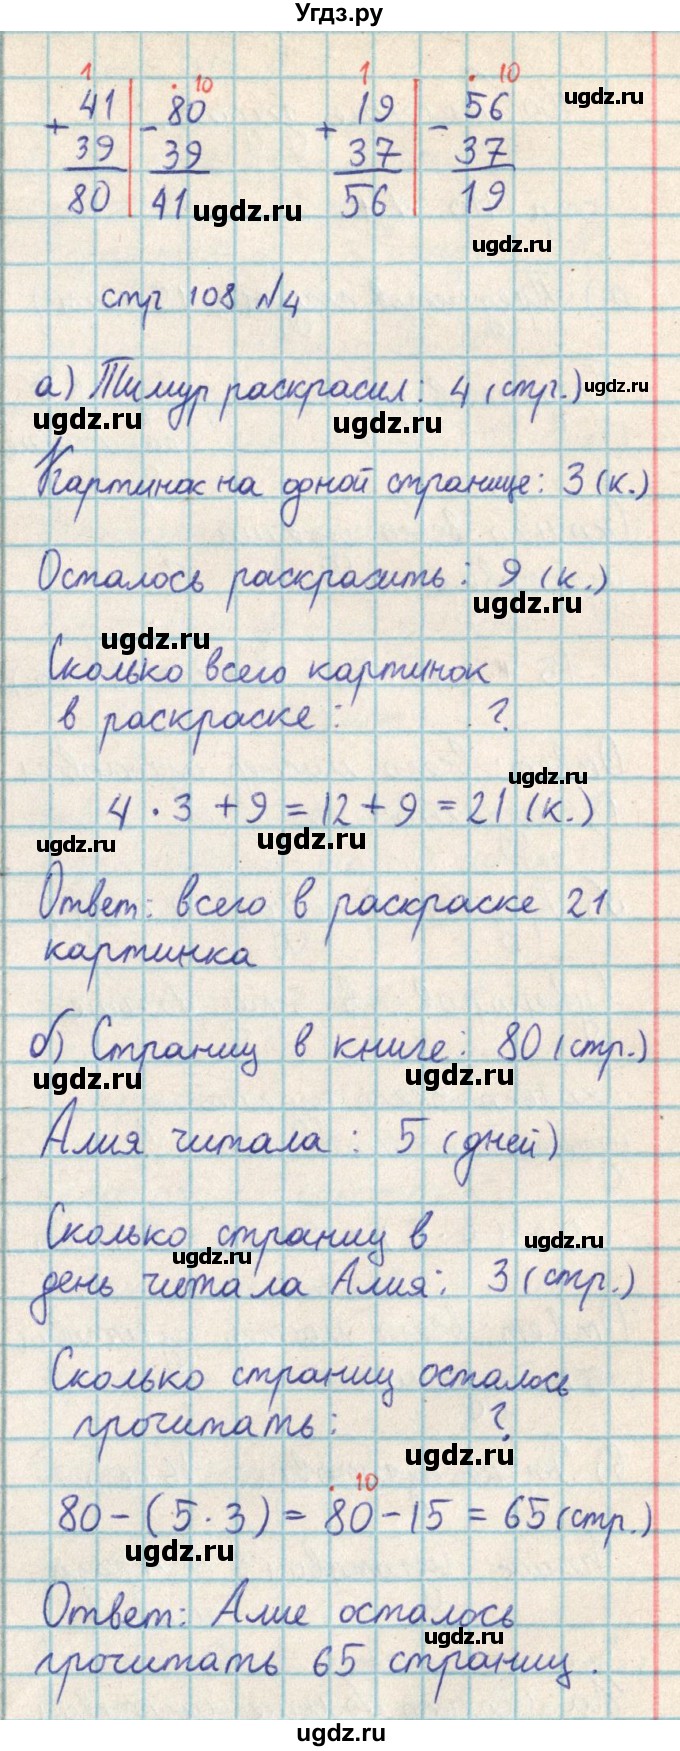 Угдз.ру
1 10 1 10
41 80 19 56
+ 39 - 39 + 37 - 37
80 41 56 19
ugdz.ru
ugdz.ru
ugdz.ru
стр 108 №4
а) Тимур раскрасил: 4 (стр.)
ugdz.ru
ugdz.ru
ugdz.ru
Картинок на одной странице: 3 (к.)
Осталось раскрасить: 9 (к.)
ugdz.ru
ugdz.ru
Сколько всего картинок
в раскраске: ?
ugdz.ru
4 · 3 + 9 = 12 + 9 = 21 (к.)
ugdz.ru
ugdz.ru
Ответ: всего в раскраске 21
картинка
б) Страниц в книге: 80 (стр.)
ugdz.ru
ugdz.ru
Алия читала: 5 (дней)
Сколько страниц в
ugdz.ru
ugdz.ru
день читала Алия: 3 (стр.)
Сколько страниц осталось
прочитать: ?
ugdz.ru
10
80 - (5 · 3) = 80 - 15 = 65 (стр.)
ugdz.ru
Ответ: Алие осталось
ugdz.ru
прочитать 65 страниц.
ugdz.ru